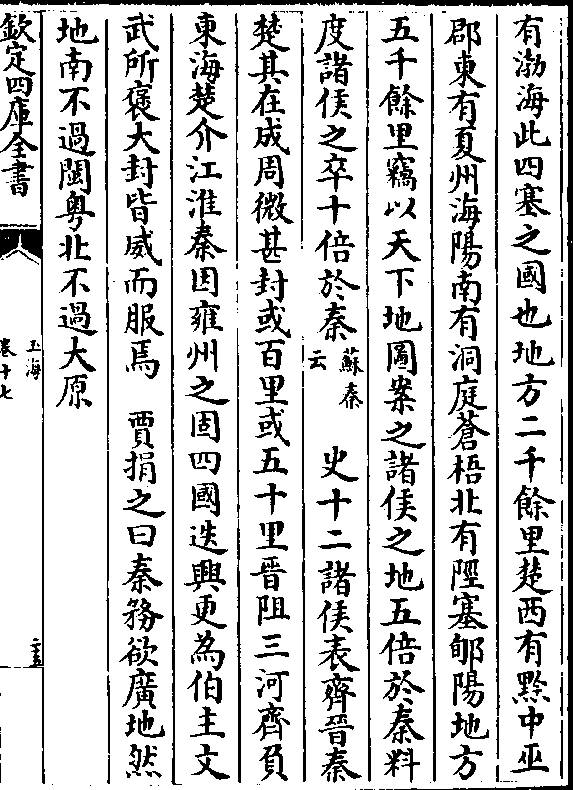 有渤海此四塞之國也地方二千餘里楚西有黔中巫
郡東有夏州海陽南有洞庭蒼梧北有陘塞郇陽地方
五千餘里竊以天下地圖案之諸侯之地五倍於秦料
度諸侯之卒十倍於秦蘇秦云 史十二諸侯表齊晉秦
楚其在成周微甚封或百里或五十里晉阻三河齊負
東海楚介江淮秦因雍州之固四國迭興更為伯主文
武所褒大封皆威而服焉 賈捐之曰秦務欲廣地然
地南不過閩粤北不過大原
欽定四庫全書
玉海
卷十七